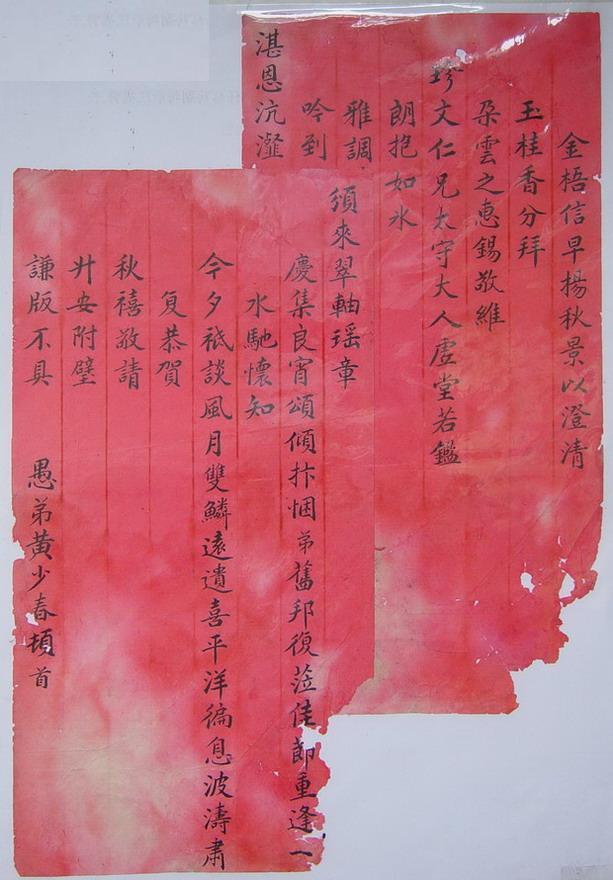 金梧信早揚秋景以澄清
玉桂香分拜
朶雲之惠錫敬維
珍文仁兄太守大人虛堂若鑑
朗抱如氷
雅調
吟到
湛恩沆瀣
須來翠軸瑶章
慶集良宵頌傾抃悃弟舊邦復蒞佳節重逢一
水馳懷知
今夕祗談風月雙鱗遠遺喜平洋徧息波濤肅
复恭賀
秋禧敬請
升安附璧
謙版不具
愚弟黃少春頓首